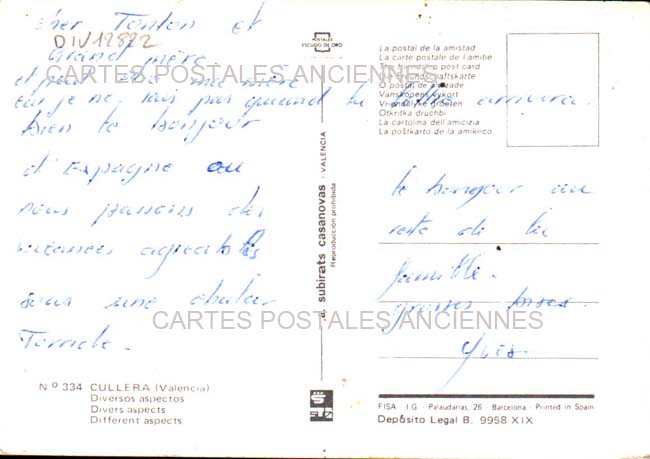 Cher Tonton et
DIV12822
Grand mère
et pour toi ma mère
car je ne sais pas quand la lettre arrivera.
bien le bonjour
d'Espagne ou
nous passons des
vacances agréables
sous une chaleur
Torride.
CARTES POSTALES ANCIENNES
POSTALES
ESCUDO DE ORO
La postal de la amistad
La carte postale de l'amitie
O postal da amizade
Vriendelijke groeten
Otkritka druchbi
La cartolina dell'amicizia
La poŝtkarto de la amikeco
le bonjour au
reste de la
famille.
grosses bises.
Yves
CARTES POSTALES ANCIENNES
a. subirats casanovas - VALENCIA
Reproducción prohibida
Nº 334 CULLERA (Valencia)
Diversos aspectos
Divers aspects
Different aspects
FISA - I.G. - Palaudarias, 26 - Barcelona - Printed in Spain
Depósito Legal B. 9958 XIX